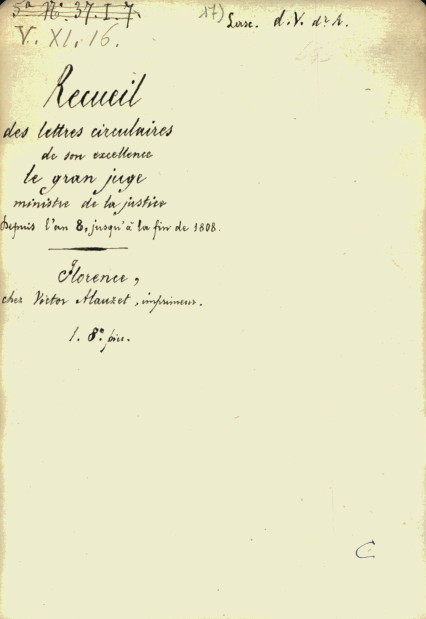 5ª Nº. 37. I. 7.
V. XI. 16.
17)
d. V. dr A.
Recueil
des lettres circulaires
de son excellence
le gran juge
ministre de la justice
Depuis l'an 8, jusqu'à la fin de 1808.
Florence,
chez Victor Alauzet, imprimeur.
1. 8º. picc.
C